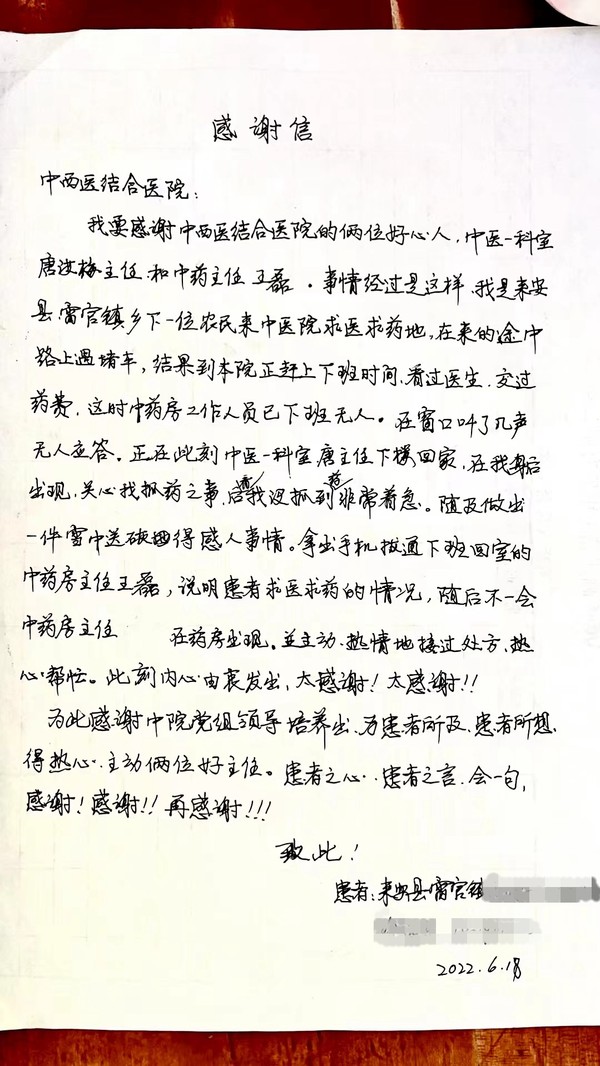 感谢信
中西医结合医院:
我要感谢中西医结合医院的俩位好心人,中医一科室
唐汝梅主任和中药主任王磊。事情经过是这样,我是来安
县雷官镇乡下一位农民来中医院求医求药地,在来的途中
路上遇堵车,结果到本院正赶上下班时间、看过医生.交过
药费.这时中药房工作人员已下班无人。在窗口叫了几声
无人应答。正在此刻中医一科室唐主任下楼回家,在我身后
出现,关心我抓药之事.我没抓到非常着急。随及做出
一件雪中送碳得感人事情。拿出手机拨通下班回室的
中药房主任王磊,说明患者求医求药的情况,随后不一会
中药房主任 在药房出现。并主动、热情地接过处方、热
心帮忙。此刻内心由衷发出,太感谢!太感谢!!
为此感谢中院党组领导培养出、为患者所及、患者所想、
得热心.主动俩位好主任。患者之心..患者之言.会一句,
感谢!感谢!!再感谢!!!
致此!
患者:来安县雷官镇
2022.6.18